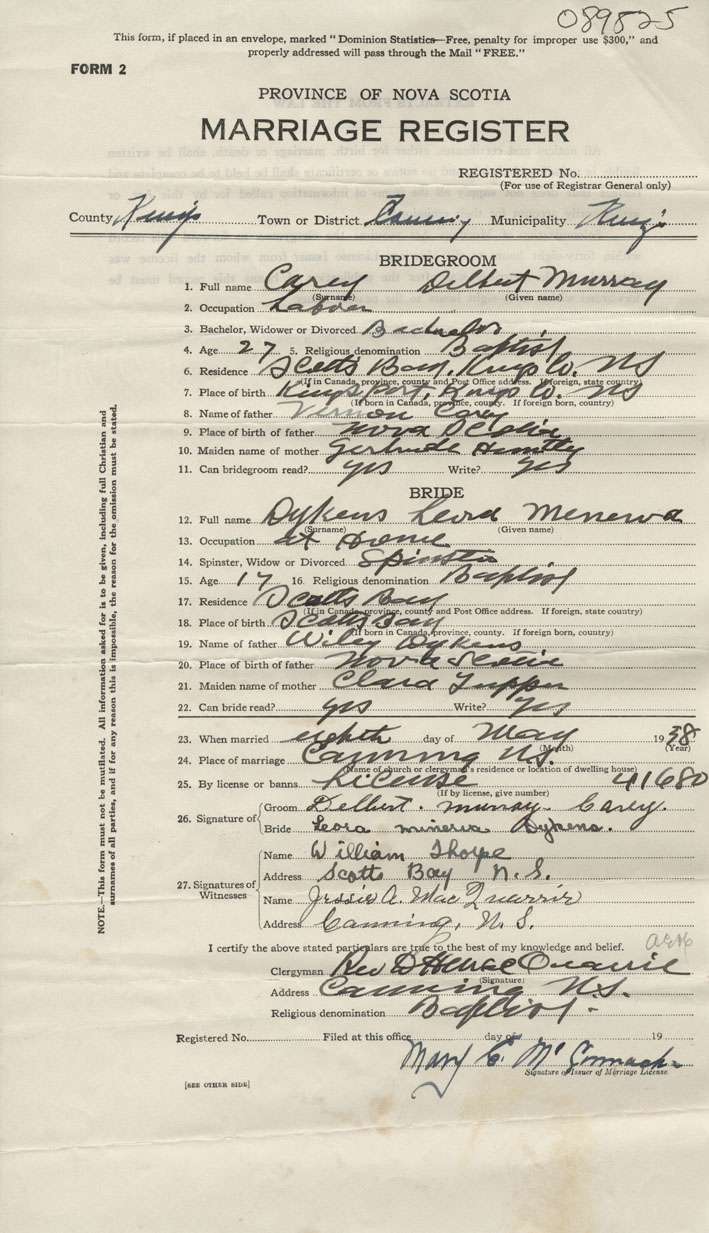 089825
This form, if placed in an envelope, marked "Dominion Statistics—Free, penalty for improper use $300," and
properly addressed will pass through the Mail "FREE."
FORM 2
PROVINCE OF NOVA SCOTIA
MARRIAGE REGISTER
REGISTERED No.
(For use of Registrar General only)
County Kings Town or District Canning Municipality Kings
BRIDEGROOM
1. Full name Carey Delbert Murray
(Surname) (Given name)
2. Occupation Labor
3. Bachelor, Widower or Divorced Bachelor
4. Age 27 5. Religious denomination Baptist
6. Residence Scotts Bay, Kings Co. NS
(If in Canada, province, county and Post Office address. If foreign, state country)
7. Place of birth Kings Port, Kings Co. NS
(If born in Canada, province, county. If foreign born, country)
8. Name of father Vernon Carey
9. Place of birth of father Nova Scotia
10. Maiden name of mother Gertrude Huntley
11. Can bridegroom read? yes Write? yes
BRIDE
12. Full name Dykens Leora Menerva
(Surname) (Given name)
13. Occupation at Home
14. Spinster, Widow or Divorced Spinster
15. Age 17 16. Religious denomination Baptist
17. Residence Scotts Bay
(If in Canada, province, county and Post Office address. If foreign, state country)
18. Place of birth Scotts Bay
(If born in Canada, province, county. If foreign born, country)
19. Name of father Wiley Dykens
20. Place of birth of father Nova Scotia
21. Maiden name of mother Clara Tupper
22. Can bride read? yes Write? yes
23. When married eighth day of May 1938
(Month) (Year)
24. Place of marriage Canning N.S.
(Name of church or clergyman's residence or location of dwelling house)
25. By license or banns License 41680
(If by license, give number)
26. Signature of Groom Delbert. murray. Carey.
Bride Leora minerva Dykens.
27. Signatures of Witnesses Name William Thorpe
Address Scotts Bay N.S.
Name Jessie A. Mac Quarrie
Address Canning, N.S.
I certify the above stated particulars are true to the best of my knowledge and belief.
Clergyman Rev D Quarrie
(Signature)
Address Canning N.S.
Religious denomination Baptist.
Registered No. Filed at this office day of 19
Mary E. McCormack
Signature of Issuer of Marriage License.
[SEE OTHER SIDE]
NOTE.—This form must not be mutilated. All information asked for is to be given, including full Christian and
surnames of all parties, and if for any reason this is impossible, the reason for the omission must be stated.